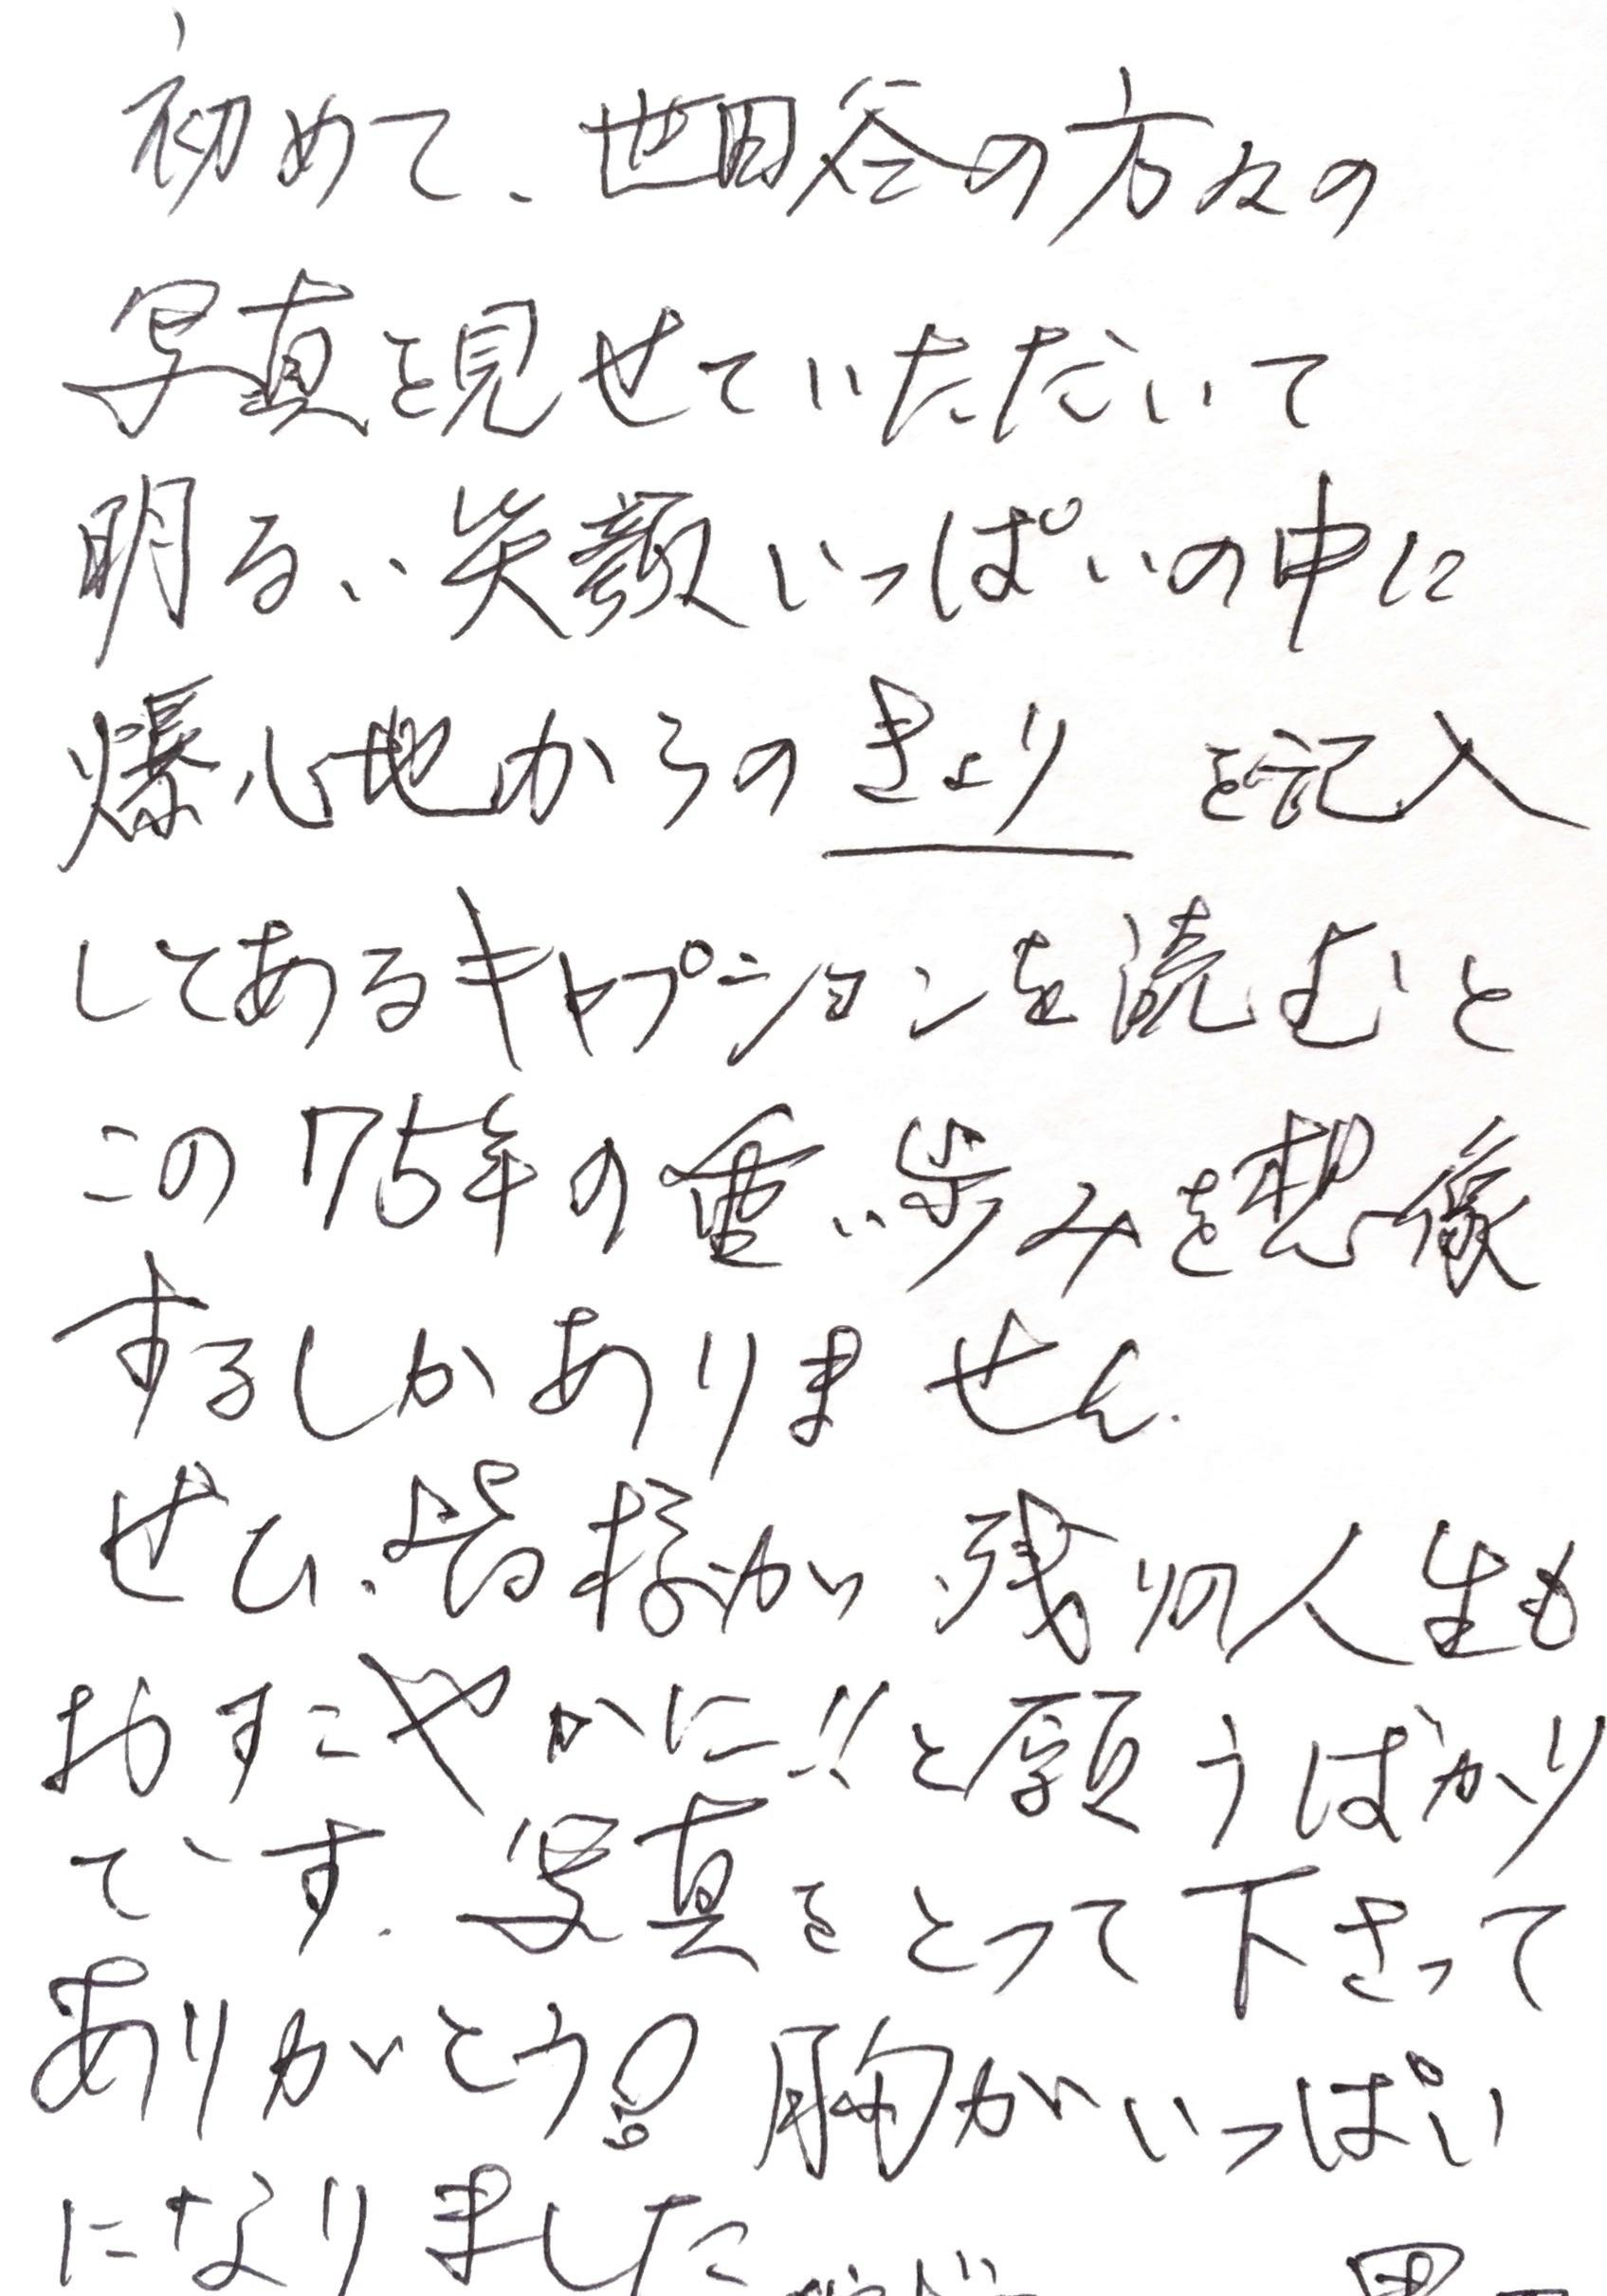 初めて、世田谷の方々の
写真を見せていただいて
明るい笑顔いっぱいの中に
爆心地からのきょり を記入
してあるキャプションを読むと
この75年の重い歩みを想像
するしかありません.
ぜひ、皆様が残りの人生も
おすこやかに!!と願うばかり
です. 写真をとって下さって
ありがとう! 胸がいっぱい
になりました